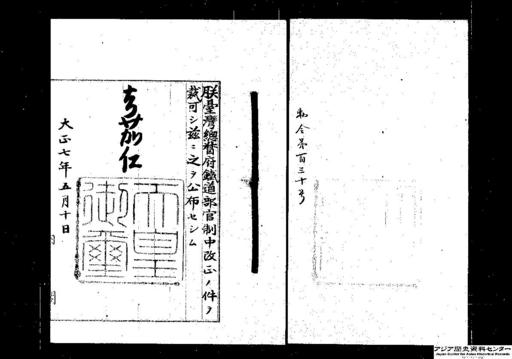 勅令第百三十号
朕臺灣總督府鐵道部官制中改正ノ件ヲ
裁可シ茲ニ之ヲ公布セシム
嘉仁
天皇
御璽
大正七年五月十日
アジア歴史資料センター
Japan Center for Asian Historical Records